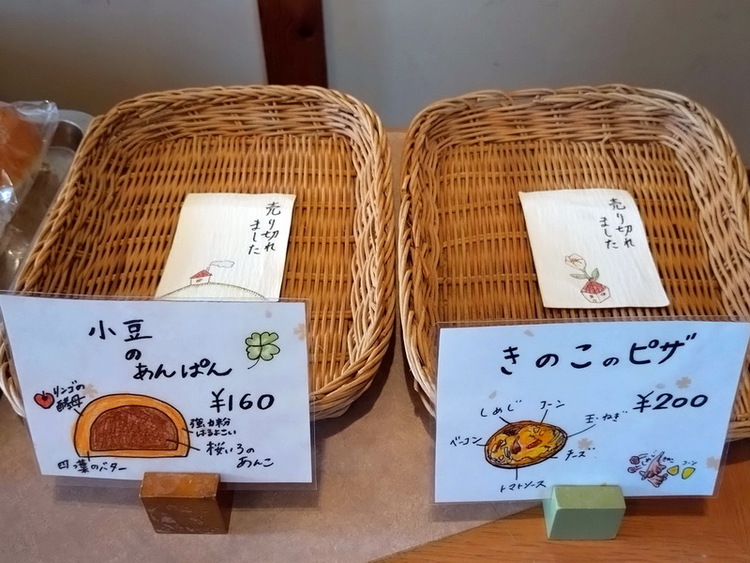 売り切れ
ました
売り切れ
ました
小豆
の
あんぱん
¥160
リンゴの
酵母
強力粉
はるよこい
桜いろの
あんこ
四つ葉のバター
きのこのピザ
¥200
しめじ
コーン
玉ねぎ
ベーコン
チーズ
トマトソース
コーン